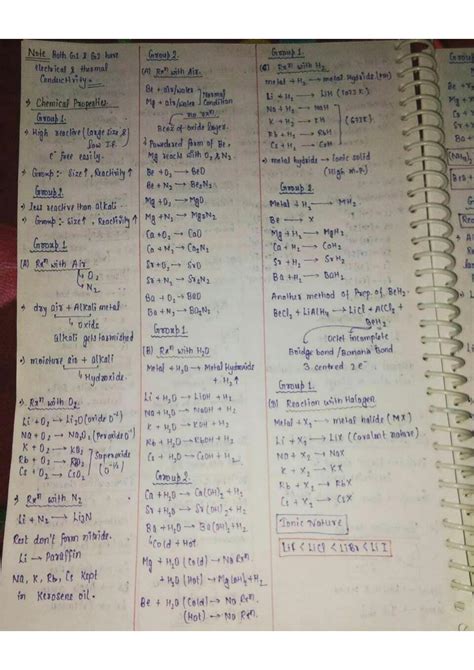 Note Both G1 & G2 have
electrical & thermal
Conductivity.
→ Chemical Properties
Group 1.
→ High reactive (large size &
low I.P.
e⁻ free easily.
→ Group :- Size↑, Reactivity↑
Group 2.
→ less reactive than alkali
→ Group :- size↑, Reactivity↑
Group 1
(A) Rxⁿ with Air
O2
N2
→ dry air + Alkali metal
Oxide
Alkali gets tarnished
→ moisture air + alkali
Hydroxide.
→ Rxⁿ with O2
Li + O2 → Li2O (oxide
Na + O2 → Na2O2 (Peroxide
K + O2 → KO2
Rb + O2 → RbO2
Cs + O2 → CsO2
Superoxide
→ Rxⁿ with N2
Li + N2 → Li3N
Rest don't form nitride.
Li → Paraffin
Na, K, Rb, Cs kept
in Kerosene oil.
Group 2.
(A) Rxⁿ with Air.
Be + air/water
Mg + air/water
Normal
Condition
no rxⁿ
Bcoz of oxide layer.
↓ Powdered form of Be,
Mg reacts with O2 & N2.
Be + O2 → BeO
Be + N2 → Be3N2.
Mg + O2 → MgO
Mg + N2 → Mg3N2
Ca + O2 → CaO
Ca + N2 → Ca3N2
Sr + O2 → SrO
Sr + N2 → Sr3N2
Ba + O2 → BaO
Ba + N2 → Ba3N2
Group 1
(B) Rxⁿ with H2O
Metal + H2O → Metal Hydroxide
+ H2↑
Li + H2O → LiOH + H2
Na + H2O → NaOH + H2
K + H2O → KOH + H2
Rb + H2O → RbOH + H2
Cs + H2O → CsOH + H2
Group 2.
Ca + H2O → Ca(OH)2 + H2
Sr + H2O → Sr(OH)2 + H2
Ba + H2O → Ba(OH)2 + H2
Cold & Hot
Mg + H2O (Cold) → No Rxⁿ.
+ H2O (Hot) → Mg(OH)2 + H2
Be + H2O (Cold) → No Rxⁿ
(Hot) → No Rxⁿ
Group 1.
(C) Rxⁿ with H2
metal + H2 → metal Hydride (MH)
Li + H2 → LiH (1073K)
Na + H2 → NaH
K + H2 → KH
Rb + H2 → RbH
Cs + H2 → CsH
(673K)
→ metal hydride → Ionic solid
(High m.P.)
Group 2.
Metal + H2 → MH2.
Be → X
Mg + H2 → MgH2
Ca + H2 → CaH2
Sr + H2 → SrH2
Ba + H2 → BaH2
Another method of Prep. of BeH2
BeCl2 + LiAlH4 → LiCl + AlCl3 +
BeH2
Octet incomplete
Bridge bond / Banana Bond
3 centred 2e⁻
Group 1.
(D) Reaction with Halogen
Metal + X2 → metal halide (MX)
Li + X2 → LiX (Covalent nature)
Na + X2 → NaX
K + X2 → KX
Rb + X2 → RbX
Cs + X2 → CsX
Ionic Nature